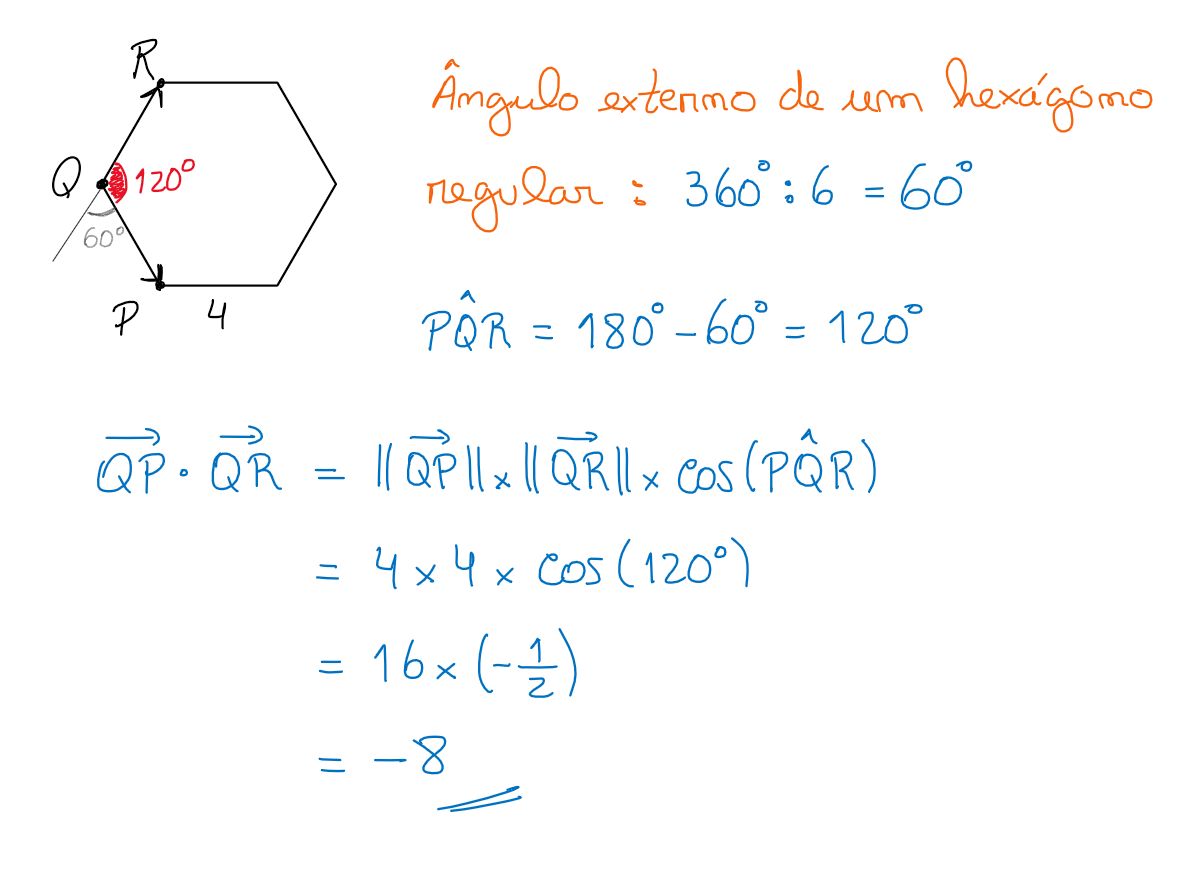 R
Ângulo externo de um hexágono
Q 120°
regular : 360° : 6 = 60°
60°
P 4
PQ̂R = 180° - 60° = 120°
$\overrightarrow{QP} \cdot \overrightarrow{QR} = \|\overrightarrow{QP}\| \times \|\overrightarrow{QR}\| \times \cos(P\hat{Q}R)$
= 4 × 4 × cos(120°)
= 16 × (-1/2)
= -8